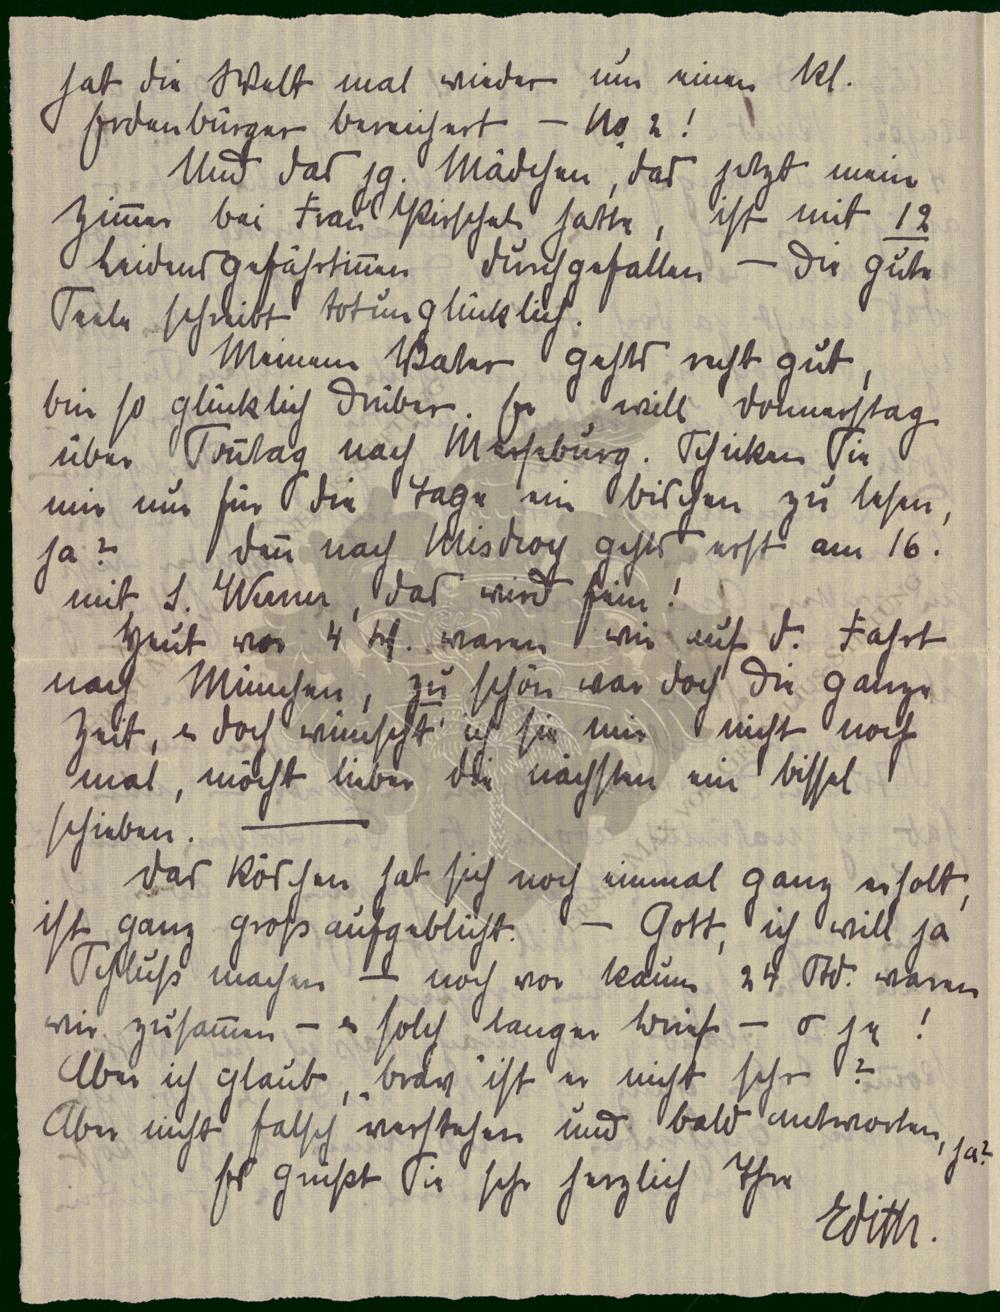 hat die Welt mal wieder um einen kl.
Erdenbürger bereichert – No 2!
Und das jg. Mädchen, das jetzt mein
Zimmer bei Frau Kirschel hatte, ist mit 12
Leidensgefährtinnen durchgefallen – die gute
Seele schreibt totunglücklich.
Meinem Vater gehts recht gut,
bin so glücklich drüber. Er will Donnerstag
über Sonntag nach Merseburg. Schicken Sie
mir nur für die Tage ein bischen zu lesen,
ja? denn nach Misdroy gehts erst am 16.
mit, das wird fein!
Heut vor 4 W. waren wir auf d. Fahrt
nach München, zu schön war doch die ganze
Zeit, u doch wünscht' ich sie mir nicht noch
mal, möcht lieber die nächsten ein bissel
schieben.
Das Röschen hat sich noch einmal ganz erholt,
ist ganz gross aufgeblüht. – Gott, ich will ja
Schluß machen – noch vor kaum 24 Std. waren
wir zusammen – u solch langer Brief – o je!
Aber ich glaub, „brav" ist er nicht sehr?
Aber nicht falsch verstehen und bald antworten, ja?
Es grüßt Sie sehr herzlich Ihre
Edith.